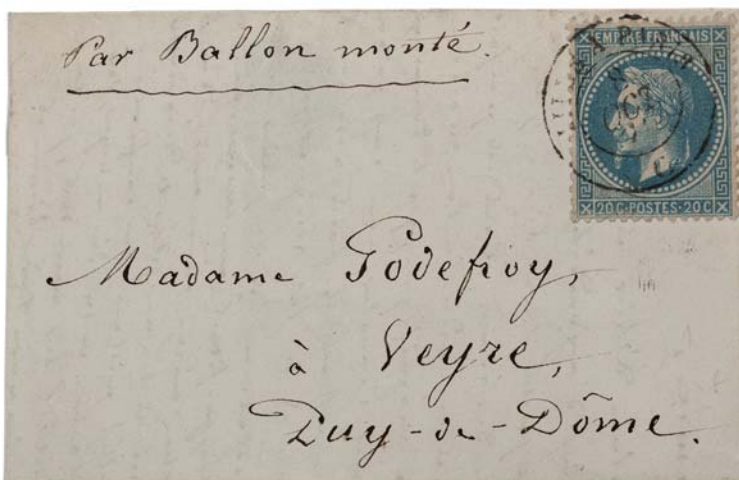 Par Ballon monté.
EMPIRE FRANÇAIS
OCT
20 C·POSTES·20 C
Madame Godefroy,
à Veyre,
Puy-de-Dôme.